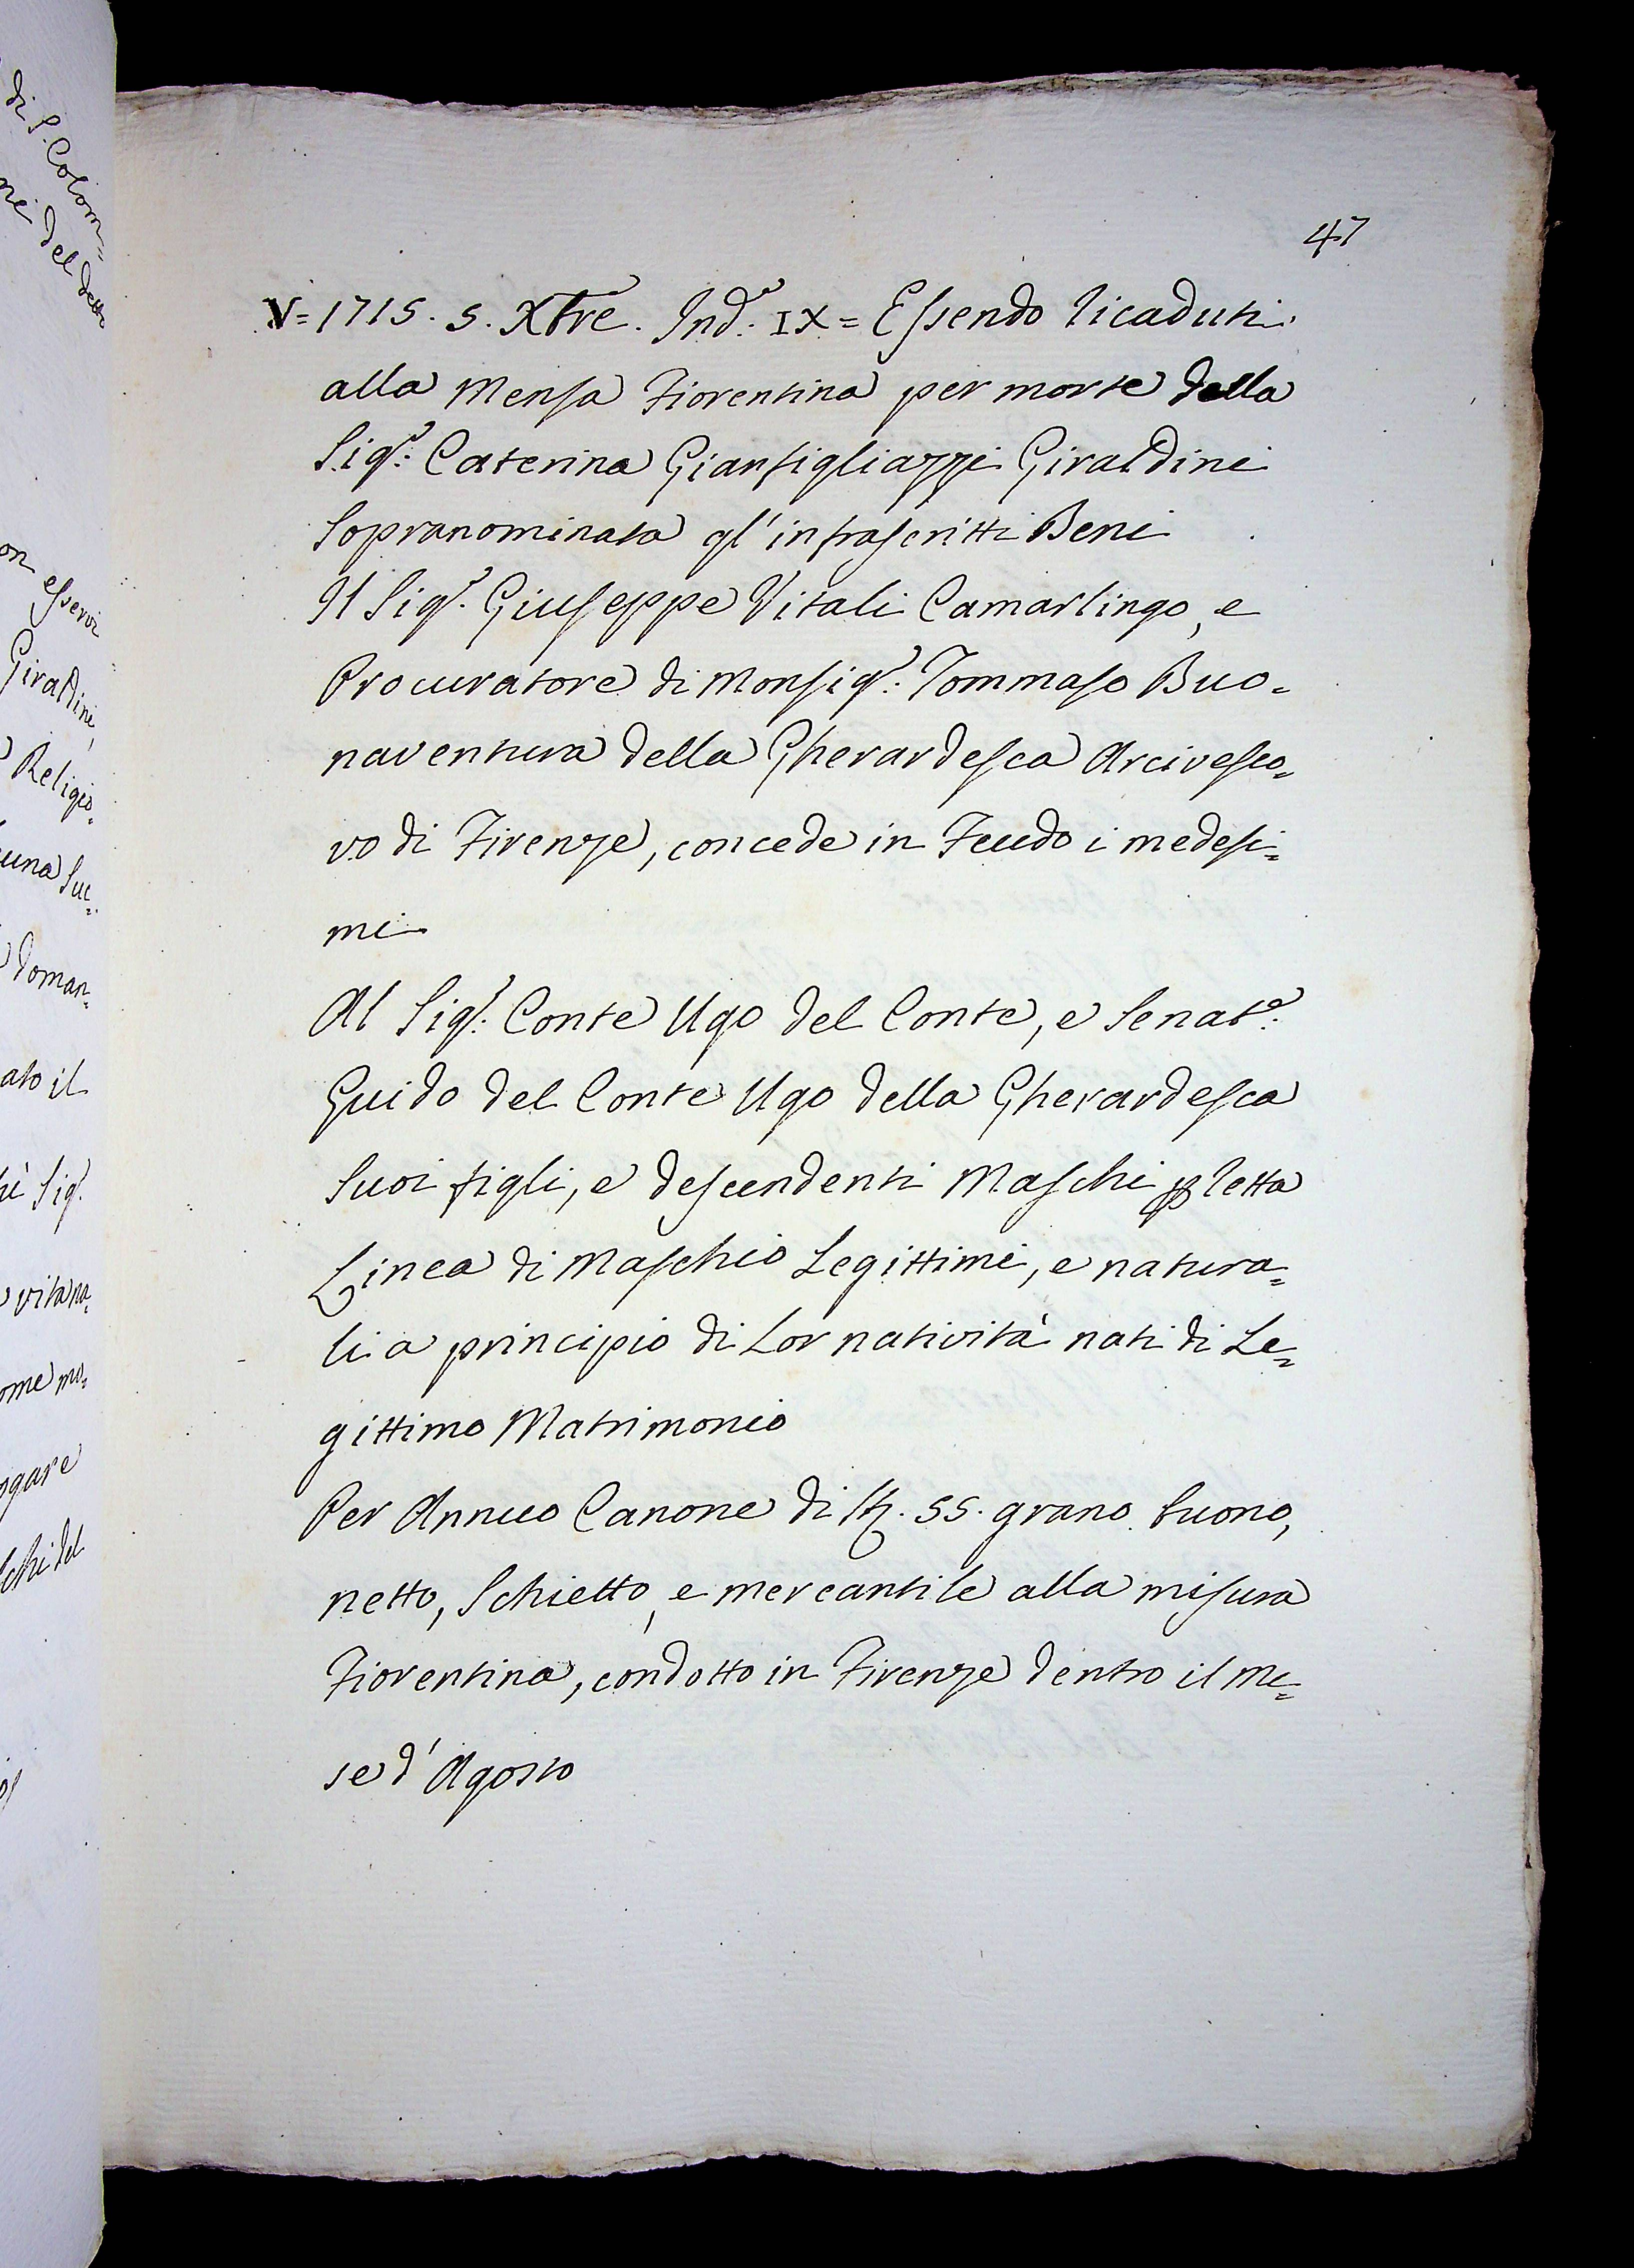 di S. Colom=
ni del detto
on esservi
Giraldini,
Religio=
una Suc=
doman=
ato il
Sig.r
vita na=
ome mo=
gare
schi del
47
V= 1715. 5. Xbre. Ind.e IX= Essendo ricaduti
alla Mensa Fiorentina per morte della
Sig.ra Caterina Gianfigliazzi Giraldini
Sopranominata gl'infrascritti Beni
Il Sig.r Giuseppe Vitali Camarlingo, e
Procuratore di Monsig.r Tommaso Buo=
naventura della Gherardesca Arcivesco=
vo di Firenze, concede in Feudo i medesi=
mi
Al Sig.r Conte Ugo del Conte, e Senat.e
Guido del Conte Ugo della Gherardesca
Suoi figli, e descendenti Maschi p retta
Linea di Maschio Legittimi, e natura=
li a principio di Lor natività nati di Le=
gittimo Matrimonio
Per Annuo Canone di st. 55. grano buono,
netto, Schietto, e mercantile alla misura
Fiorentina, condotto in Firenze dentro il Me=
se d'Agosto